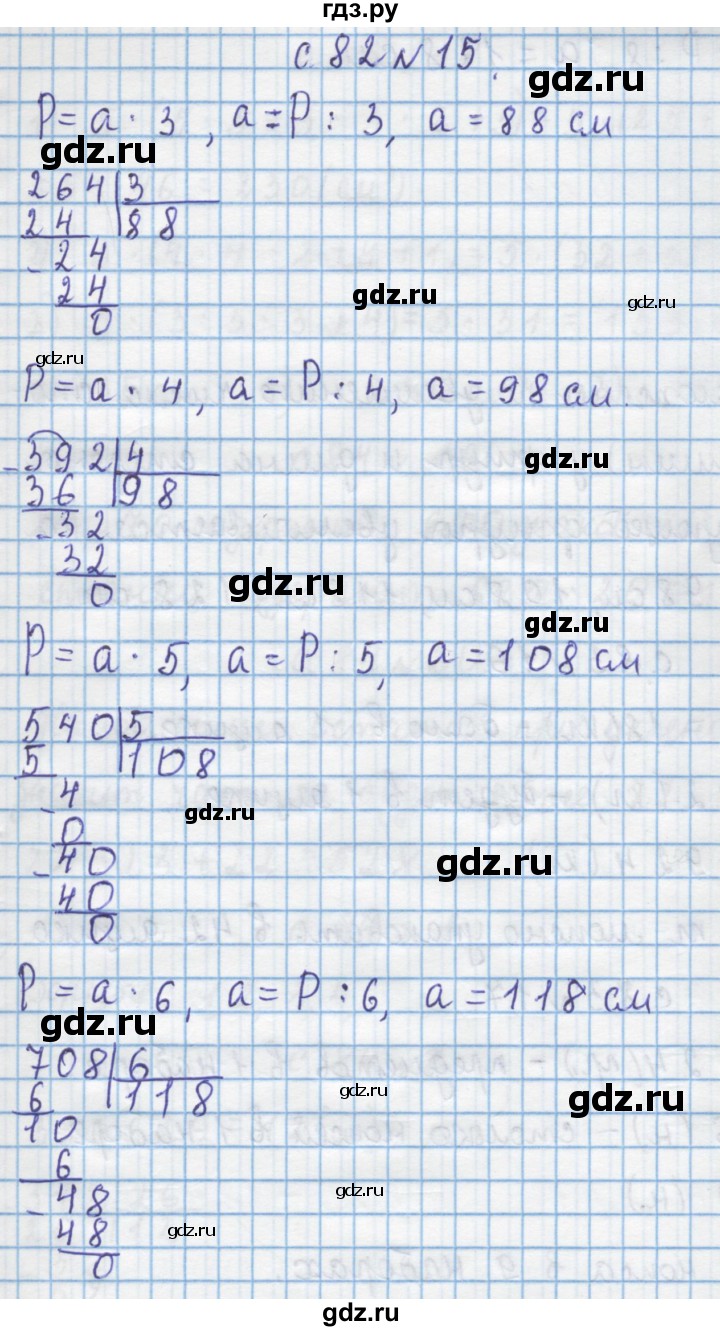 гдз.ру
с. 82 № 15.
gdz.ru
P = a · 3, a = P : 3, a = 88 см
gdz.ru
264 3
24 88
- 24
24
gdz.ru
gdz.ru
0
gdz.ru
P = a · 4, a = P : 4, a = 98 см.
- 392 4
gdz.ru
36 98
- 32
32
gdz.ru
0
gdz.ru
P = a · 5, a = P : 5, a = 108 см
540 5
5 108
- 4
gdz.ru
0
- 40
gdz.ru
40
0
P = a · 6, a = P : 6, a = 118 см
gdz.ru
708 6
gdz.ru
6 118
gdz.ru
10
6
gdz.ru
- 48
48
gdz.ru
0
gdz.ru